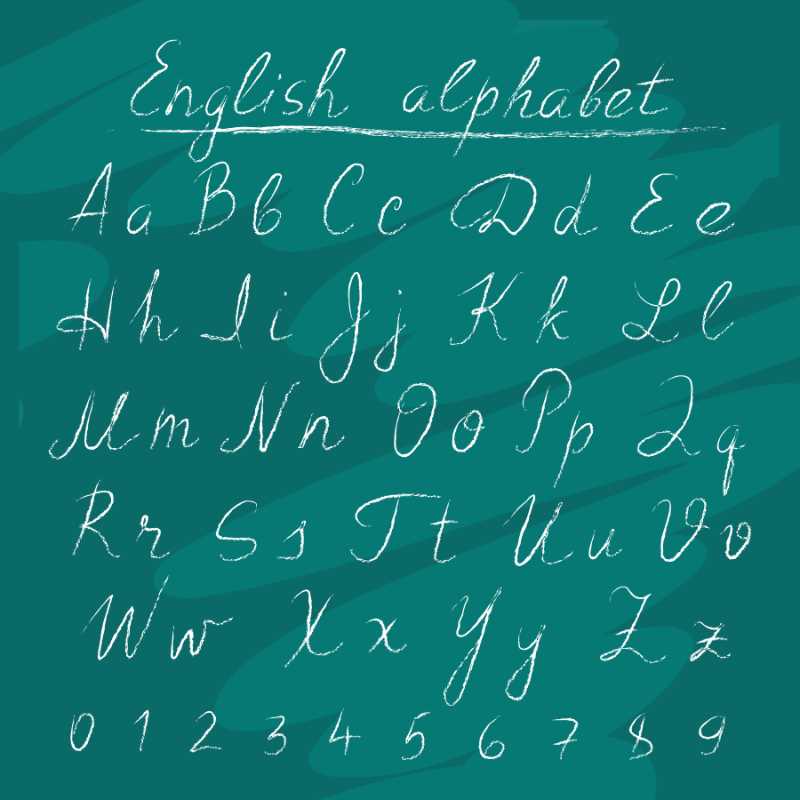 English alphabet
Aa Bb Cc Dd Ee
Hh Ii Jj Kk Ll
Mm Nn Oo Pp Qq
Rr Ss Tt Uu Vv
Ww Xx Yy Zz
0 1 2 3 4 5 6 7 8 9